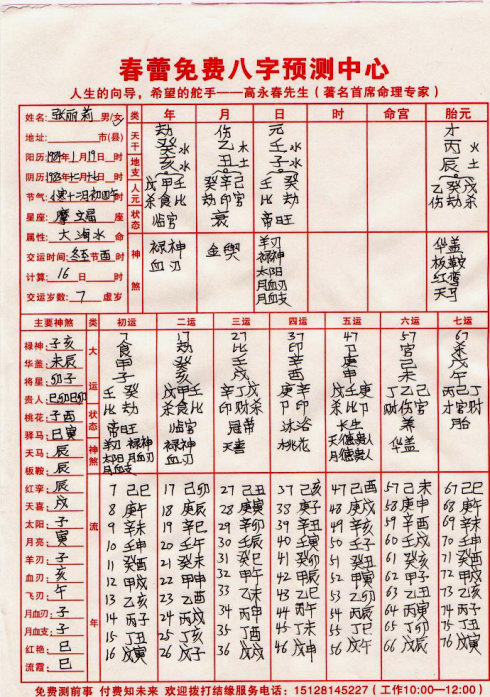 春蕾免费八字预测中心
人生的向导，希望的舵手——高永春先生（著名首席命理专家）
姓名: 张丽莉 男/女 类 年 月 日 时 命宫 胎元
地址: 市(县) 天干 劫 癸水 伤 乙木 元 壬水 才 丙火
阳历: 1984年1月19日 时 地支 亥水 丑土 子水 辰土
阴历: 1983年 时 人元 戊甲壬 癸辛己 壬癸 乙癸戊
节气: 杀食比 劫印官 比劫 伤劫杀
星座: 摩羯 座 状态 临官 衰 帝旺
属性: 大海水 命 神煞 禄神 金舆 羊刃 华盖
交运时间: 节 时 血刃 禄神 板鞍
计算: 16 日 时 太阳 红鸾
交运岁数: 7 虚岁 月血刃
月血支
主要神煞 类 初运 二运 三运 四运 五运 六运 七运
禄神: 子亥 大运 7 17 27 37 47 57 67
华盖: 未辰 食 劫 比 印 卩 官 杀
将星: 卯子 甲 癸 壬 辛 庚 己 戊
贵人: 巳卯巳卯 子 亥 戌 酉 申 未 午
桃花: 子酉 状态 壬癸 戊甲壬 辛丁戊 庚辛 戊壬庚 丁乙己 丙己丁
驿马: 巳寅 比劫 杀食比 印财杀 卩印 杀比卩 财伤官 才官财
天马: 辰 帝旺 临官 冠带 沐浴 长生 养 胎
板鞍: 辰 神煞 羊刃 禄神 禄神 天喜 桃花 天德贵人 华盖
红鸾: 辰 太阳 月血刃 血刃 月德贵人
月血支
天喜: 戌 流年 7 己巳 17 己卯 27 己丑 37 己亥 47 己酉 57 己未 67 己巳
太阳: 子 8 庚午 18 庚辰 28 庚寅 38 庚子 48 庚戌 58 庚申 68 庚午
月亮: 寅 9 辛未 19 辛巳 29 辛卯 39 辛丑 49 辛亥 59 辛酉 69 辛未
羊刃: 子 10 壬申 20 壬午 30 壬辰 40 壬寅 50 壬子 60 壬戌 70 壬申
血刃: 亥 11 癸酉 21 癸未 31 癸巳 41 癸卯 51 癸丑 61 癸亥 71 癸酉
飞刃: 午 12 甲戌 22 甲申 32 甲午 42 甲辰 52 甲寅 62 甲子 72 甲戌
月血刃: 子 13 乙亥 23 乙酉 33 乙未 43 乙巳 53 乙卯 63 乙丑 73 乙亥
月血支: 子 14 丙子 24 丙戌 34 丙申 44 丙午 54 丙辰 64 丙寅 74 丙子
红艳: 巳 15 丁丑 25 丁亥 35 丁酉 45 丁未 55 丁巳 65 丁卯 75 丁丑
流霞: 巳 16 戊寅 26 戊子 36 戊戌 46 戊申 56 戊午 66 戊辰 76 戊寅
免费测前事 付费知未来 欢迎拨打结缘服务电话：15128145227（工作10:00—12:00）